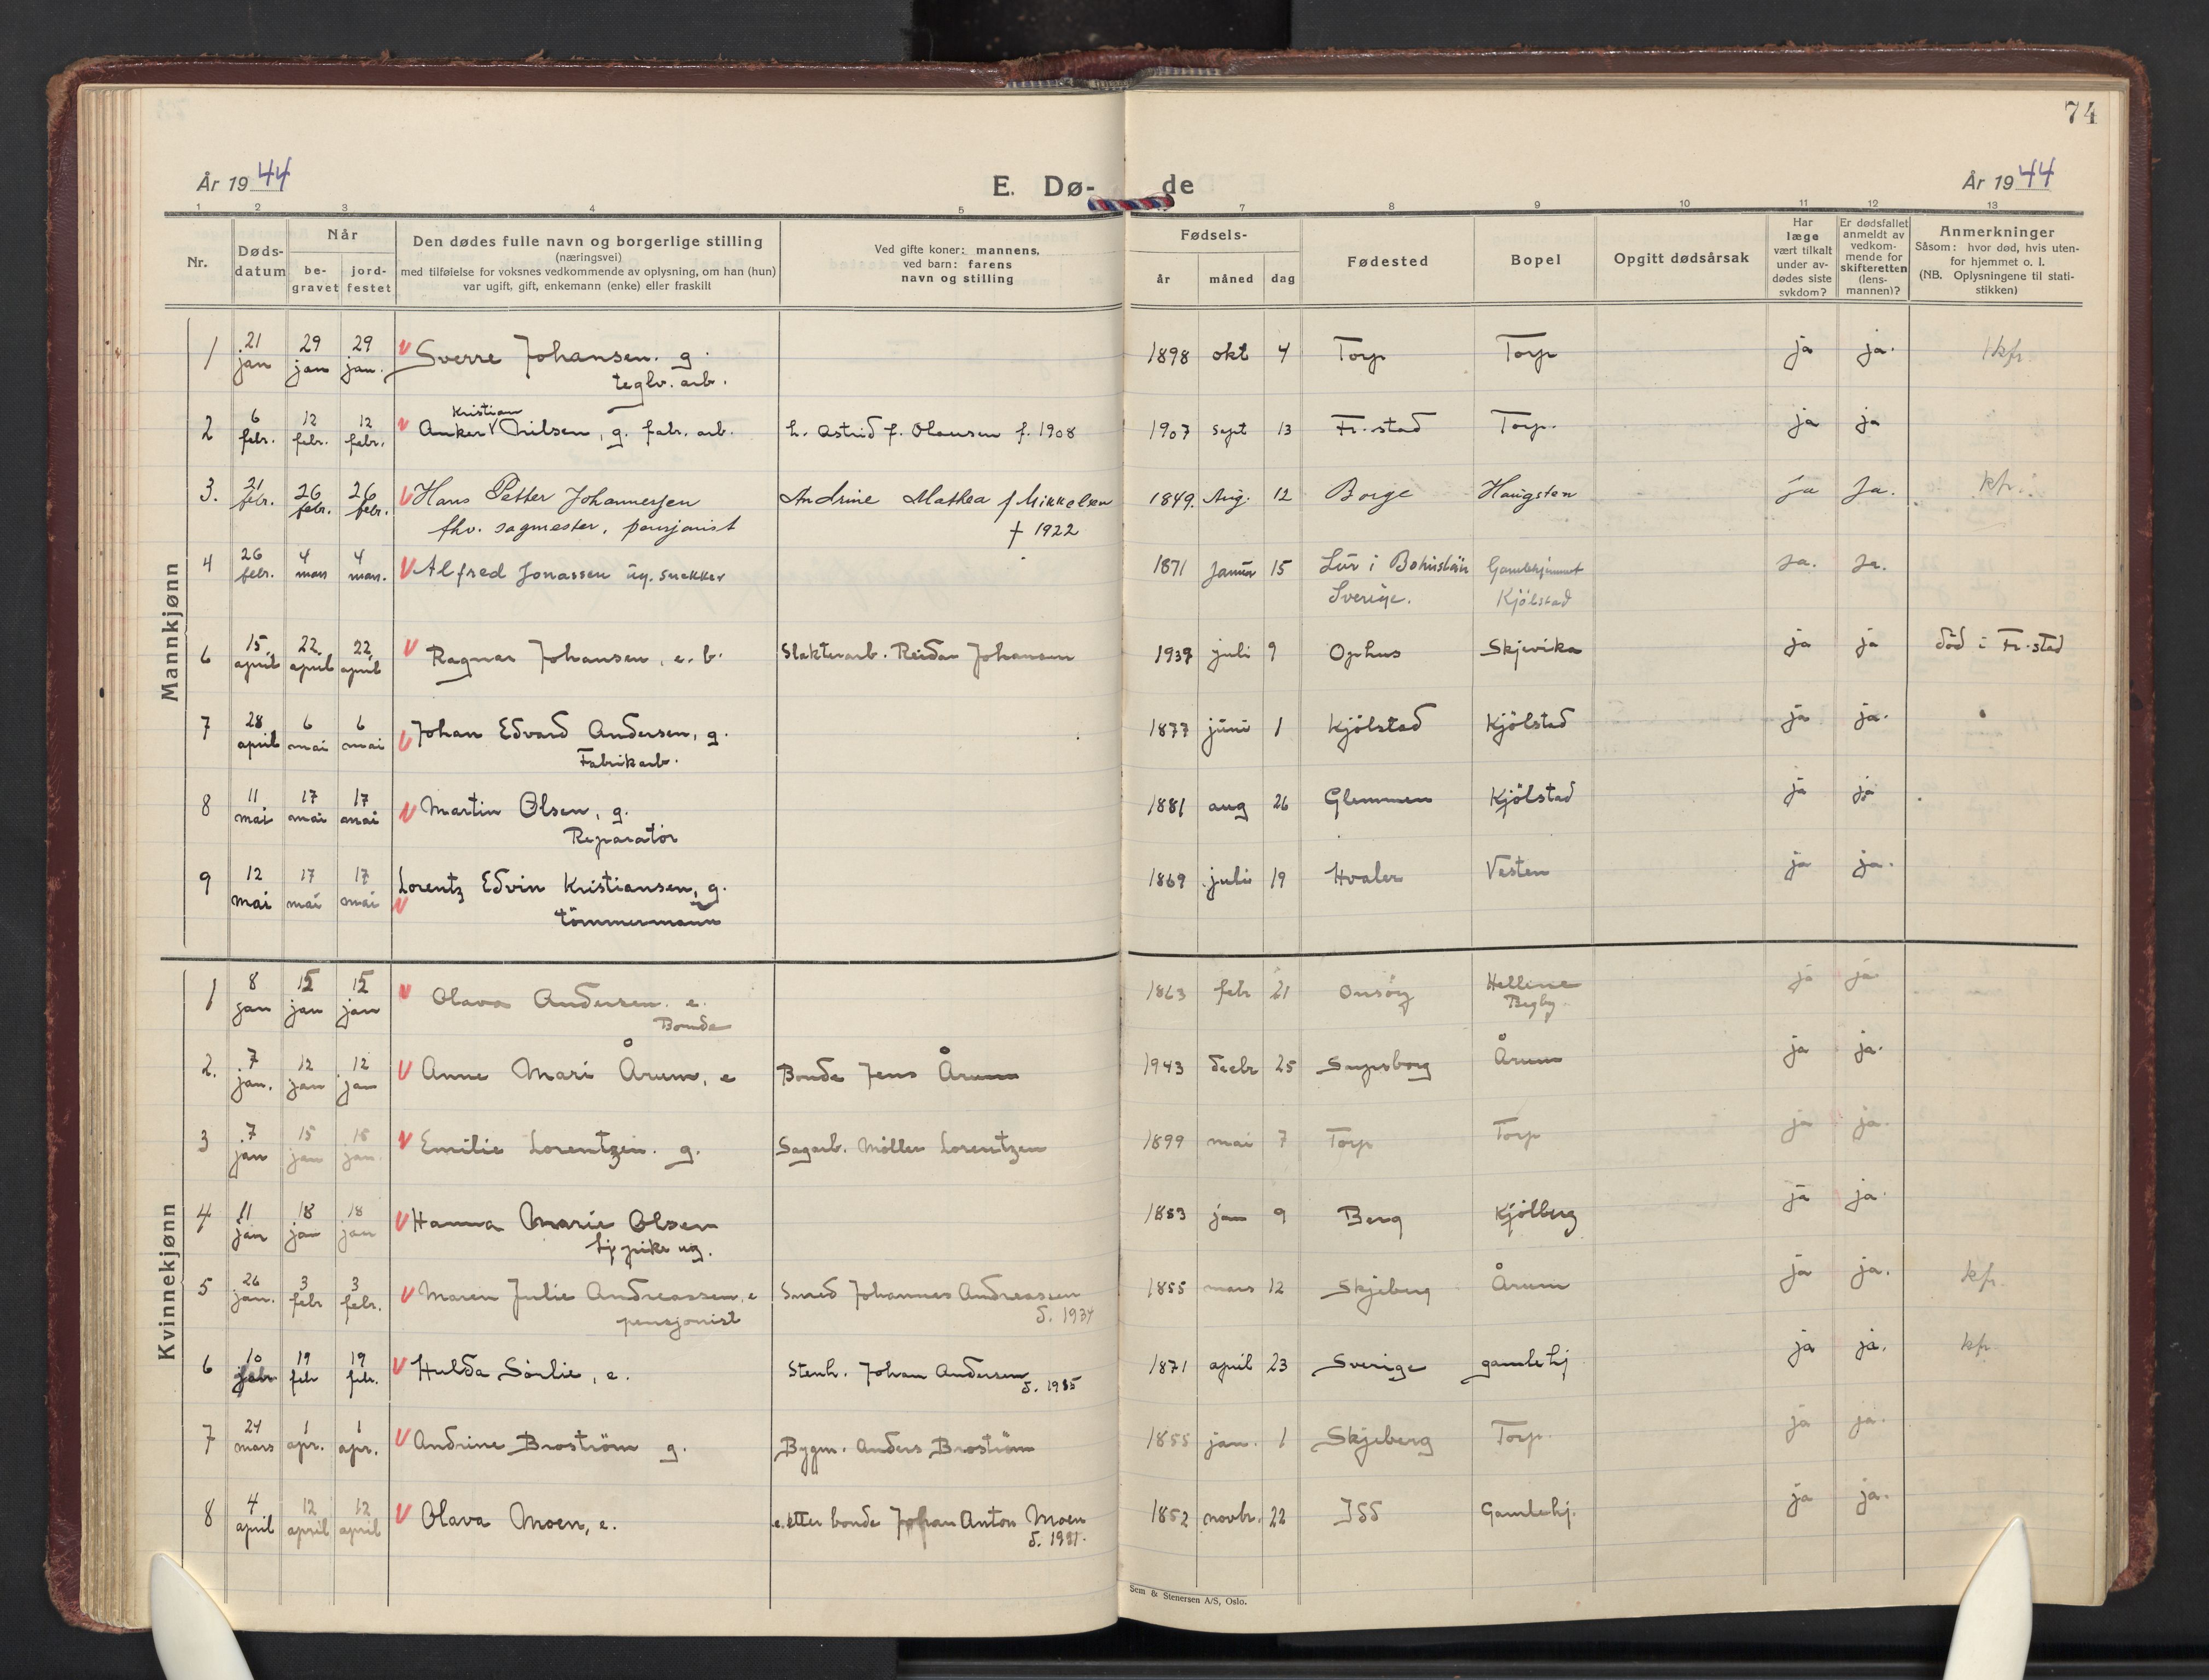 74
År 19 44
E. Dø-
de
År 19 44
1 2 3 4 5 7 8 9 10 11 12 13
Nr.
Døds-
datum
Når
be-
gravet
jord-
festet
Den dødes fulle navn og borgerlige stilling
(næringsvei)
med tilføielse for voksnes vedkommende av oplysning, om han (hun)
var ugift, gift, enkemann (enke) eller fraskilt
Ved gifte koner: mannens,
ved barn: farens
navn og stilling
Fødsels-
år måned dag
Fødested
Bopel
Opgitt dødsårsak
Har
læge
vært tilkalt
under av-
dødes siste
sykdom?
Er dødsfallet
anmeldt av
vedkom-
mende for
skifteretten
(lens-
mannen)?
Anmerkninger
Såsom: hvor død, hvis uten-
for hjemmet o. l.
(NB. Oplysningene til stati-
stikken)
Mannkjønn
1 21 jan 29 jan 29 jan. V Sverre Johansen. g. 1898 okt 4 Torp Torp ja ja. kfr.
teglv. arb.
Kristian
2 6 febr. 12 febr. 12 febr. V Anker V Nilsen, g. fabr. arb. h. Astrid f. Olausen f. 1908 1907 sept 13 Fr.stad Torp. ja ja
3. 21 febr. 26 febr. 26 febr. V Hans Petter Johannessen Andrine Mathea f Mikkelsen 1849. Aug. 12 Borge Haugsten ja Ja. kfr.
fhv. sagmester, pensjonist † 1922
4 26 febr. 4 mars 4 mars. V Alfred Jonassen ug. snekker 1871 Januar 15 Lur i Bohuslän Gamlehjemmet Ja. Ja.
Sverige. Kjölstad
6 15. april 22 april 22 april V Ragnar Johansen, e. b. Slakterarb. Reidar Johansen 1939 juli 9 Ophus Skjevika ja ja död i Fr.stad
7 28 april 6 mai 6 mai V Johan Edvard Andersen, g. 1877 juni 1 Kjölstad Kjölstad ja ja.
Fabrikarb.
8 11 mai 17 mai 17 mai V Martin Olsen, g. 1881 aug 26 Glemmen Kjölstad ja ja
Reparatör
9 12 mai 17 mai 17 mai V Lorentz Edvin Kristiansen, g. 1869 juli 19 Hvaler Vesten ja ja.
tömmermann
Kvinnekjønn
1 8 jan 15 jan 15 jan V Olava Andersen. e. 1863 febr 21 Onsöy Helline ja ja.
Bonde Begby
2. 7 jan. 12 jan 12 jan V Anne Mari Årum, e Bonde Jens Årum 1943 decbr 25 Sarpsborg Årum ja ja.
3 7 jan 15 jan 15 jan V Emilie Lorentzen. g. Sagarb. Möller Lorentzen 1899 mai 7 Torp Torp ja ja.
4 11 jan 18 jan 18 jan V Hanna Marie Olsen 1853 jan 9 Berg Kjölberg ja ja.
hj pike ug.
5 26 jan. 3 febr 3 febr. V Maren Julie Andreassen, e Smed Johannes Andreassen 1855 mars 12 Skjeberg Årum ja ja. kfr.
pensjonist d. 1934
6 10 febr 19 febr 19 febr. V Hulda Sörlie, e. Stenh. Johan Andersen 1871 april 23 Sverige gamlehj ja ja. kfr
d. 1935
7 24 mars 1 apr. 1 apr. V Andrine Broström g. Bygm. Anders Broström 1855 jan. 1 Skjeberg Torp. ja ja.
8 4 april 12 april 12 april V Olava Moen, e. e. etter bonde Johan Anton Moen 1852 novbr. 22 Idd Gamlehj. ja ja.
d. 1931.
Sem & Stenersen A/S, Oslo.